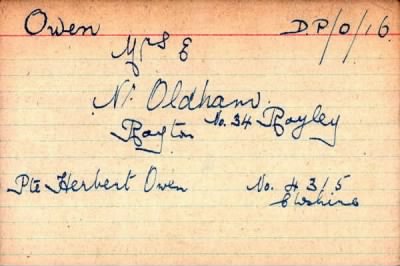 Owen D.P/O/16.
Mrs E
Nr Oldham.
Royton No. 34 Royley
Pte Herbert Owen No. 4315
Cheshire